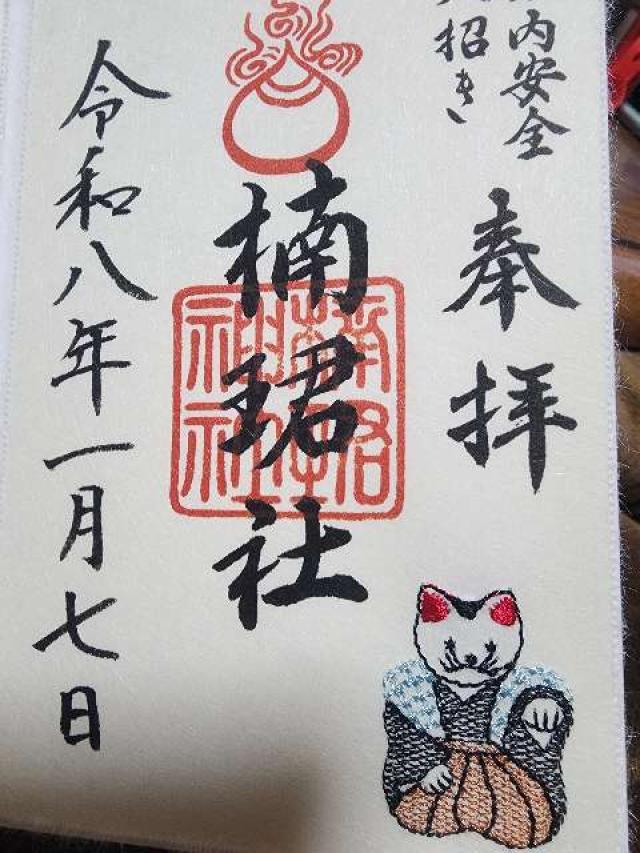 内安全
招き
奉拝
楠珺社
令和八年一月七日